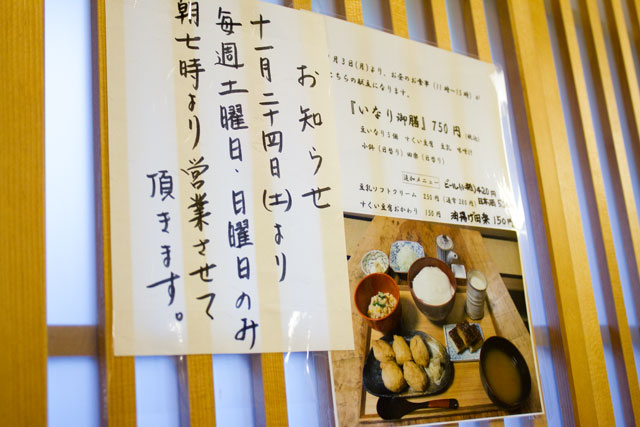 お知らせ
十一月二十四日(土)より
毎週土曜日、日曜日のみ
朝七時より営業させて
頂きます。
月3日(月)より、お昼のお食事(11時〜15時)が
こちらの献立になります。
『いなり御膳』750円(税込)
豆いなり5個 すくい豆腐 豆乳 味噌汁
小鉢(日替り) 田楽(日替り)
追加メニュー
ビール(小瓶)420円
豆乳ソフトクリーム 200円(通常280円)
日本酒
すくい豆腐おかわり 150円
油揚げ田楽 150円